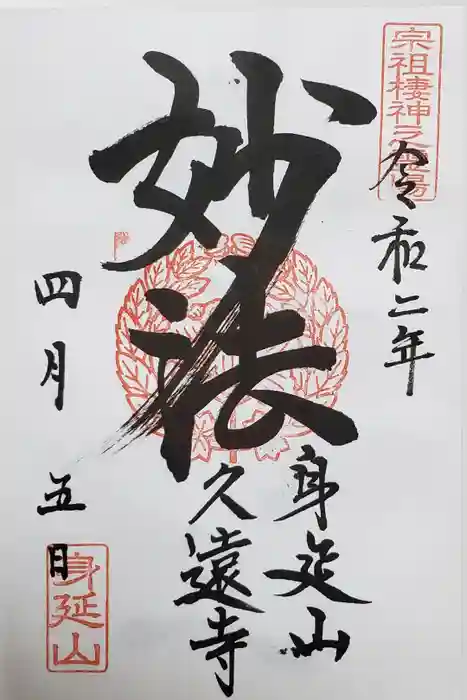 宗祖棲神之霊場
令和二年
妙法
身延山
久遠寺
四月
五日
身延山